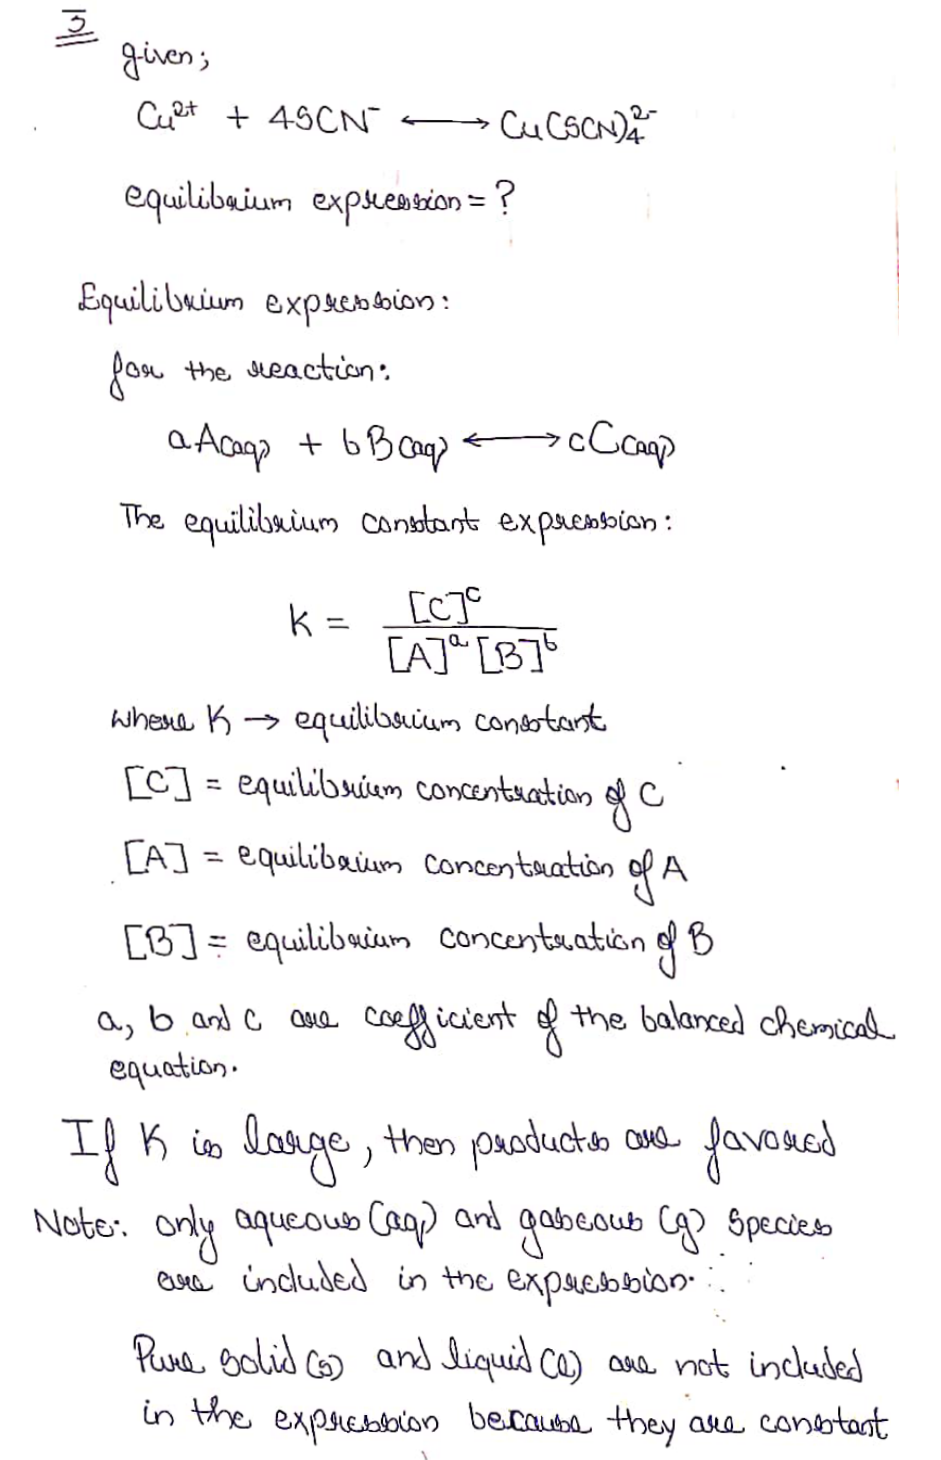 3
given;
Cu²⁺ + 4SCN⁻ ⟷ Cu(SCN)₄²⁻
equilibrium expression = ?
Equilibrium expression:
for the reaction:
aA(aq) + bB(aq) ⟷ cC(aq)
The equilibrium constant expression:
K = [C]ᶜ / [A]ᵃ [B]ᵇ
where K → equilibrium constant
[C] = equilibrium concentration of C
[A] = equilibrium concentration of A
[B] = equilibrium concentration of B
a, b and c are coefficient of the balanced chemical
equation.
If K is large, then products are favored
Note: only aqueous (aq) and gaseous (g) species
are included in the expression.
Pure solid (s) and liquid (l) are not included
in the expression because they are constant